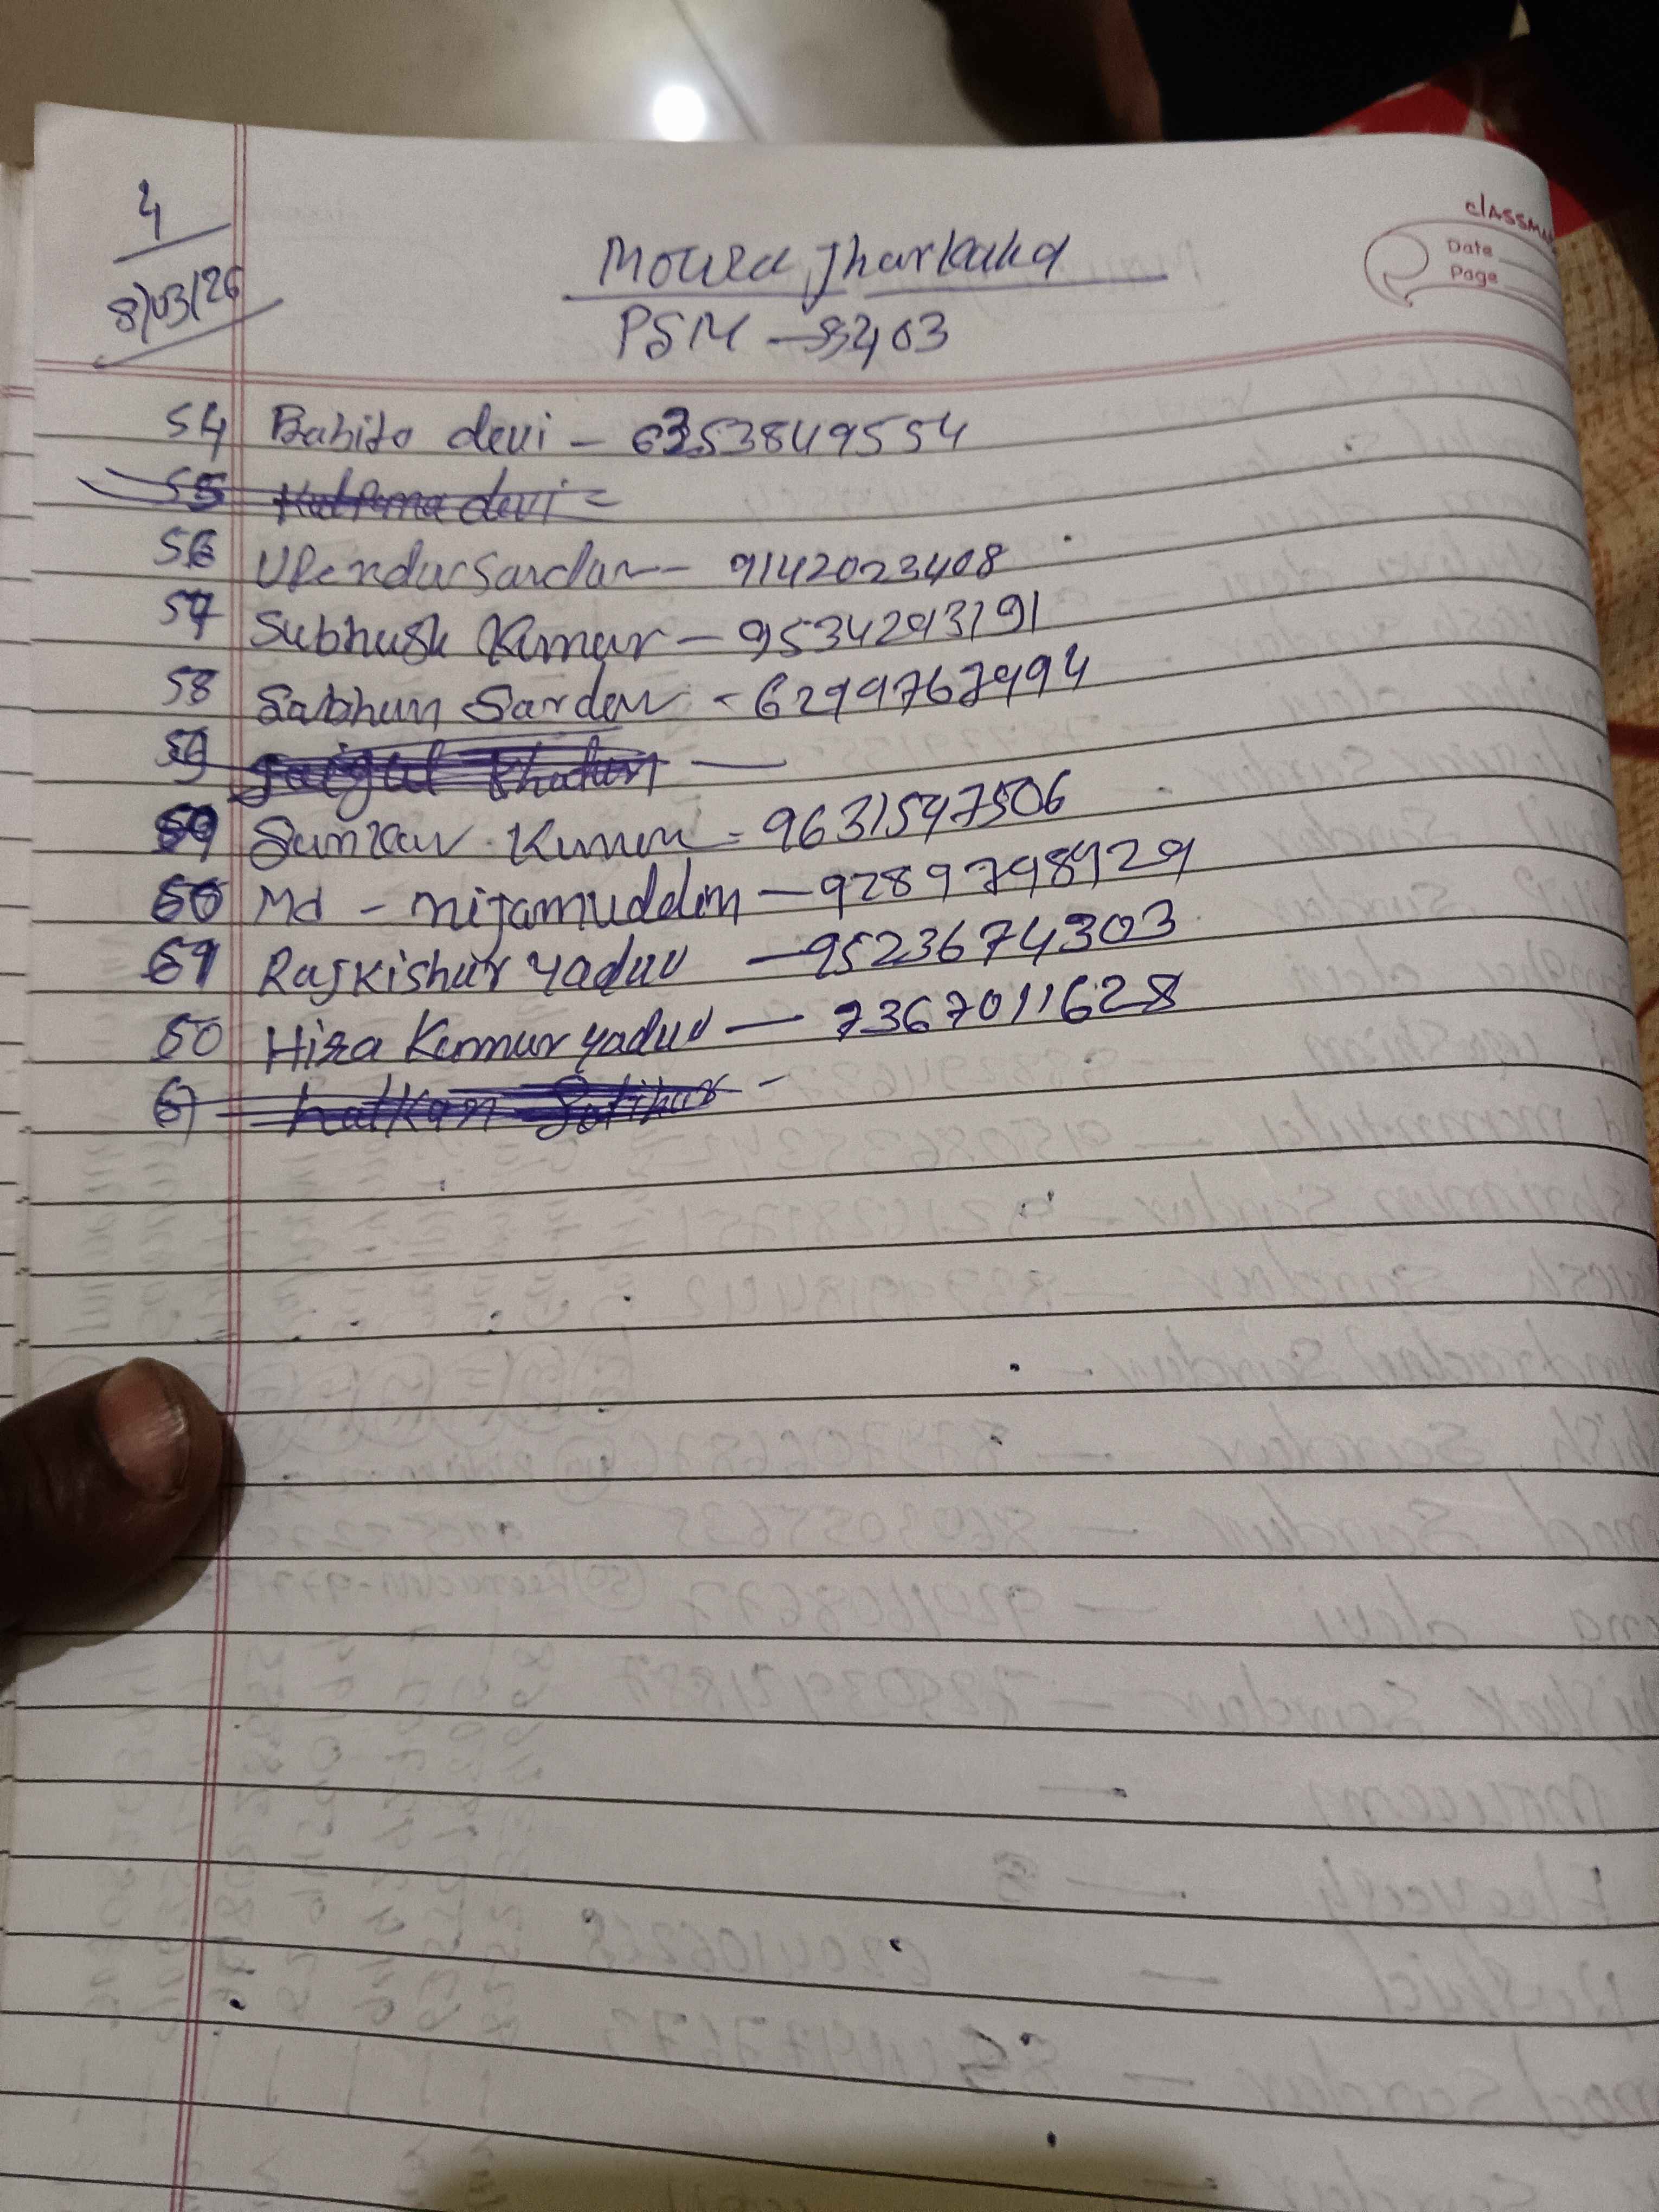 4
8/03/26
classma
Date
Page
Mouza Jharkahd
PSM - 8403
54 Babita devi - 6353849554
55 Kalpana devi =
56 Upendar Sardar - 9142023408
57 Subhash Kumar - 9534293191
58 Sabhun Sardar - 6299767994
59 Khatun -
59 Sankar Kumar - 9631547506
Md - nijamuddin - 9289798929
61 Rajkishur Yaduv - 9523674303
50 Hira Kumur yaduv - 7367011628